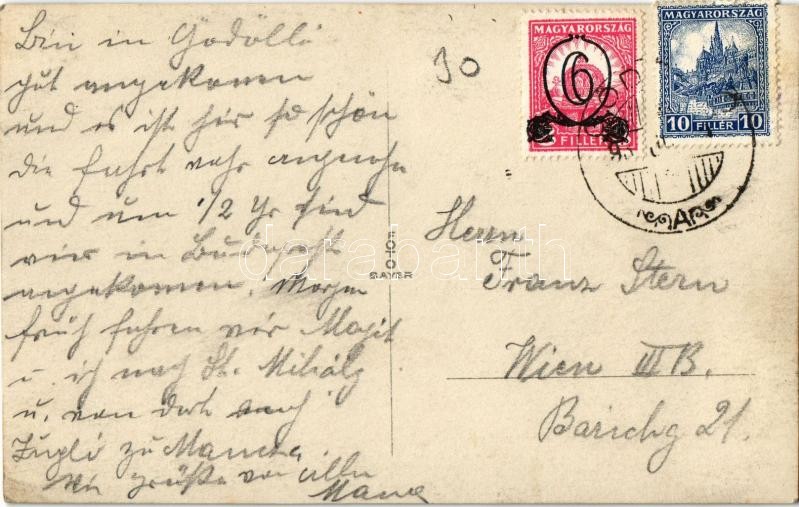 Bin in Gödöllő
gut angekommen
und es ist hir so schön
die Fahrt wahr angenehm
und um 1/2 7 sind
wir in Budapest
angekommen. Morgen
früh fahren wir
u. ich nach St. Mihály
u. von dort nach
Zugló zu
grüße von allen
30
MAGYARORSZÁG
6
FILLÉR
MAGYARORSZÁG
10 FILLÉR 10
FOTO
BAYER
darabanth
Herrn
Franz Stern
Wien III B.
Barichg 21.